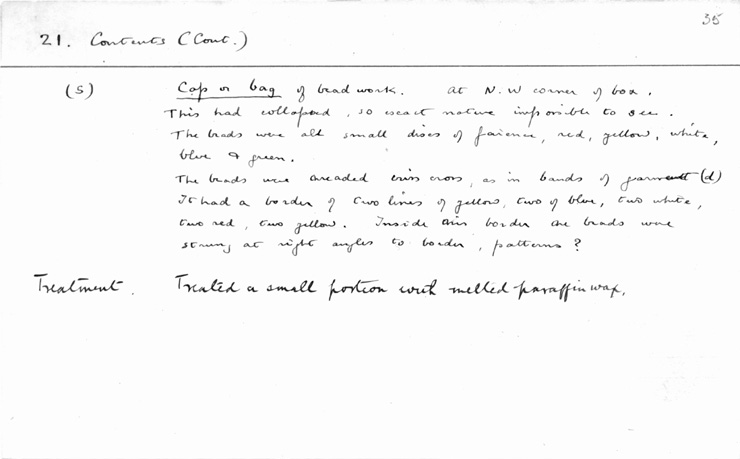 35
21. Contents (Cont.)
(s) Cap or bag of bead work. At N.W corner of box.
This had collapsed, so exact nature impossible to see.
The beads were all small discs of faience, red, yellow, white,
blue & green.
The beads were threaded criss cross, as in bands of garment (d)
It had a border of two lines of yellow, two of blue, two white,
two red, two yellow. Inside this border the beads were
strung at right angles to border, patterns?
Treatment. Treated a small portion with melted paraffin wax.